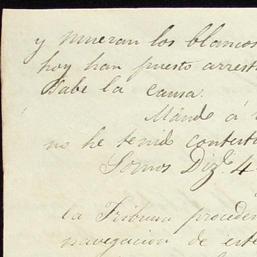 y mueran los blancos
hoy han puesto arrest
Sabe la causa.
Mando á
no he tenido contest
Somos Dizᵉ 4
la Tribuna proceden
navegacion de este